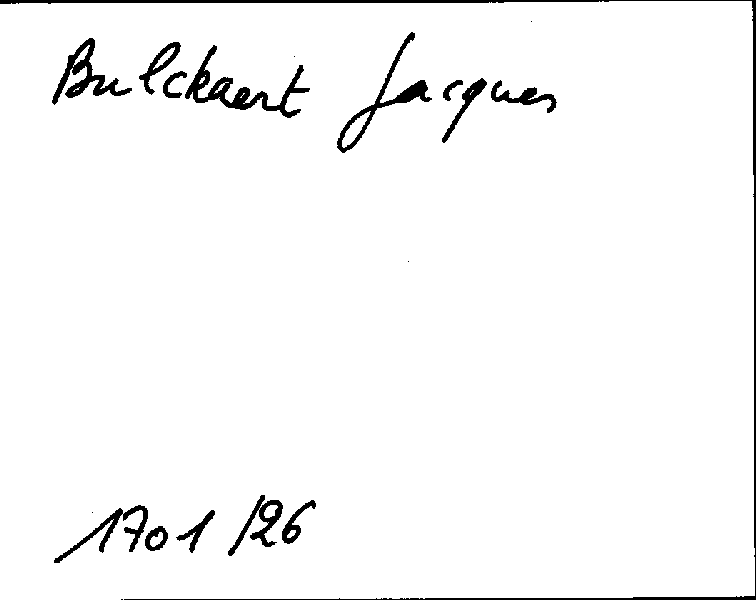 Bulckaert Jacques
1701/26